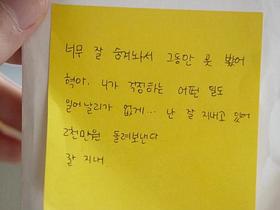 너무 잘 숨겨놔서 그동안 못 봤어
혁아, 니가 걱정하는 어떤 일도
일어날리가 없게... 난 잘 지내고 있어
2천만원 돌려보낸다
잘 지내